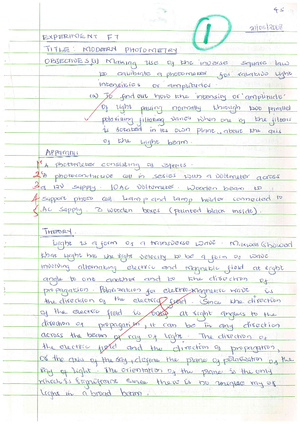 1
EXPERIMENT F7
TITLE: MODERN PHOTOMETRY
OBJECTIVES (i) Making use of the inverse square law
to calibrate a photometer for relative light
intensities or amplitudes
(ii) To find out how the intensity or amplitude
of light passing normally through two parallel
polarizing filters varies when one of the filters
is rotated in its own plane about the axis
of the light beam
APPARATUS
A photometer consisting of
photoconductive cell in series with a voltmeter across
a 12V supply 10AC voltmeter wooden beam to
support photo cell Lamp and lamp holder connected to
AC supply 2 wooden boxes (painted black inside).
THEORY
Light is a form of a transverse wave. Maxwell showed
that light has the right velocity to be a form of wave
involving alternating electric and magnetic field at right
angle to one another and to the direction of
propagation. Polarization for electro-magnetic wave is
the direction of the electric field. Since the direction
of the electric field is at right angles to the
direction of propagation, it can be in any direction
across the beam or ray of light. The direction of
the electric field and the direction of propagation,
of the axis of the ray, define the plane of polarisation of the
ray of light. The orientation of the plane is the only
significance since there is no single ray of
light in a broad beam.